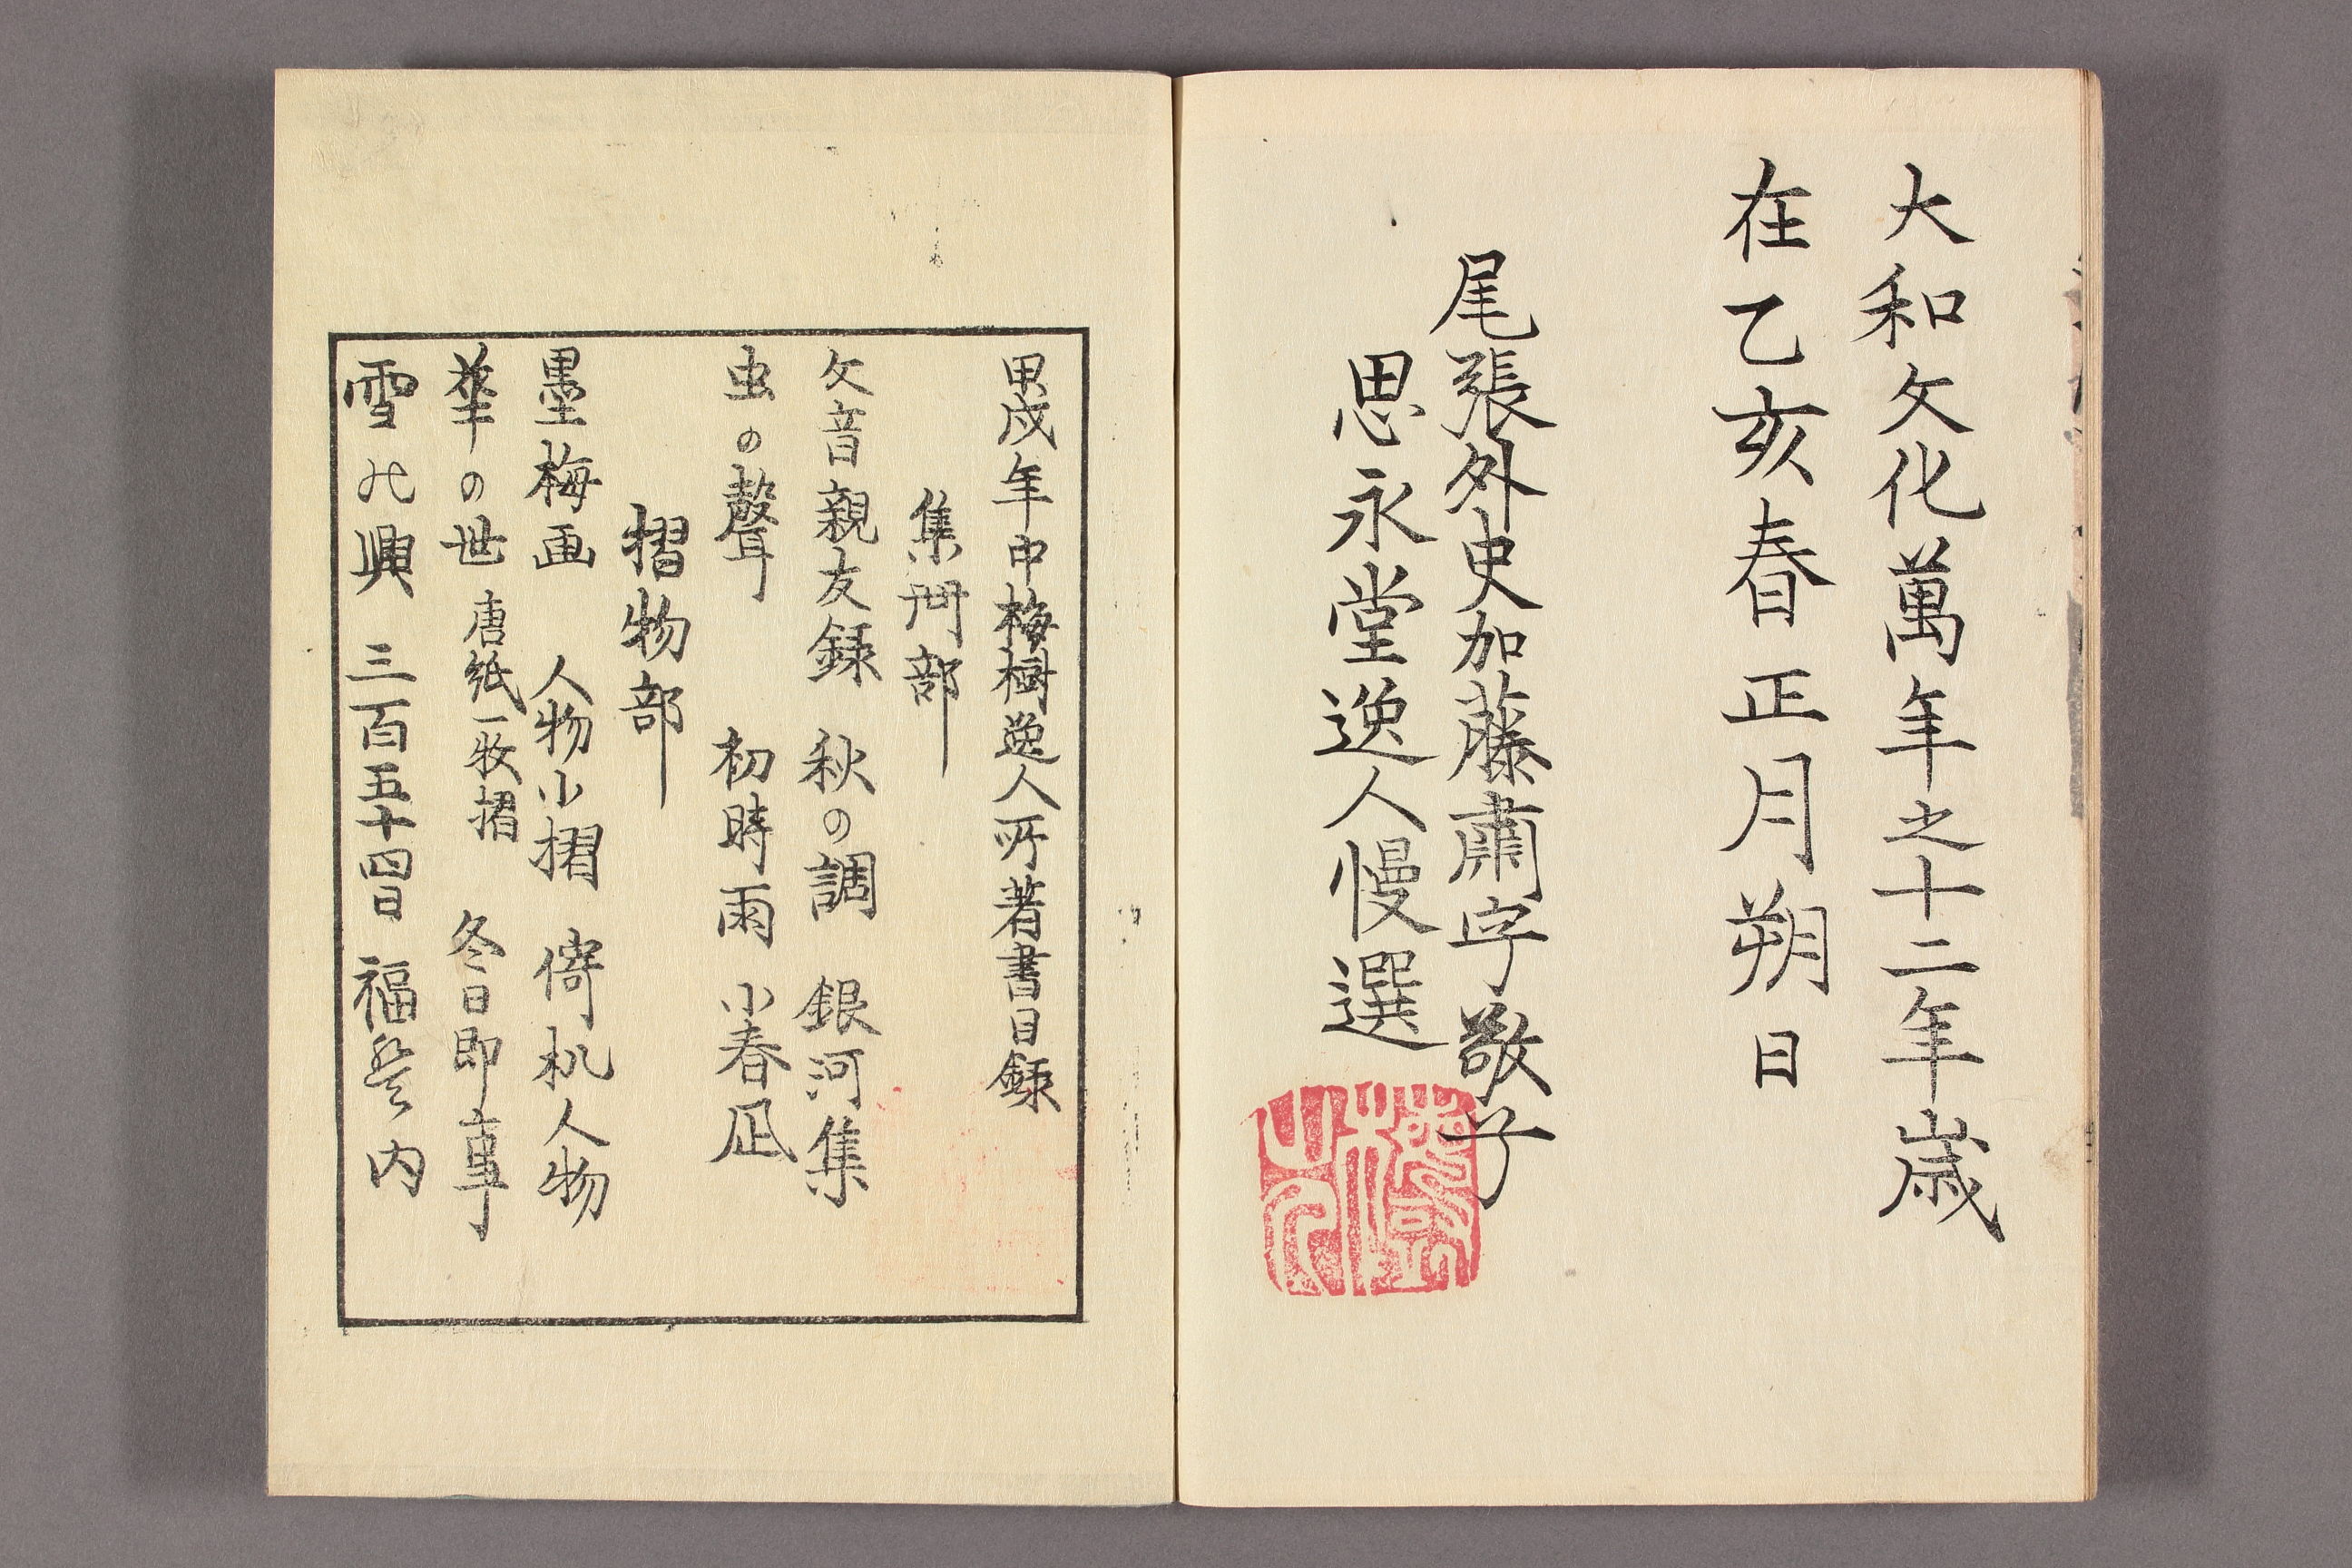 大和文化萬年之十二年歳
在乙亥春正月朔日
尾張外史加藤肅字敬子
思永堂逸人慢選
甲戌年中梅樹逸人所著書目録
集冊部
文音親友録　秋の調　銀河集
虫の聲　初時雨　小春凪
摺物部
墨梅画　人物小摺　倚机人物
華の世　唐紙一枚摺　冬日即事
雪の興　三百五十四日　福内